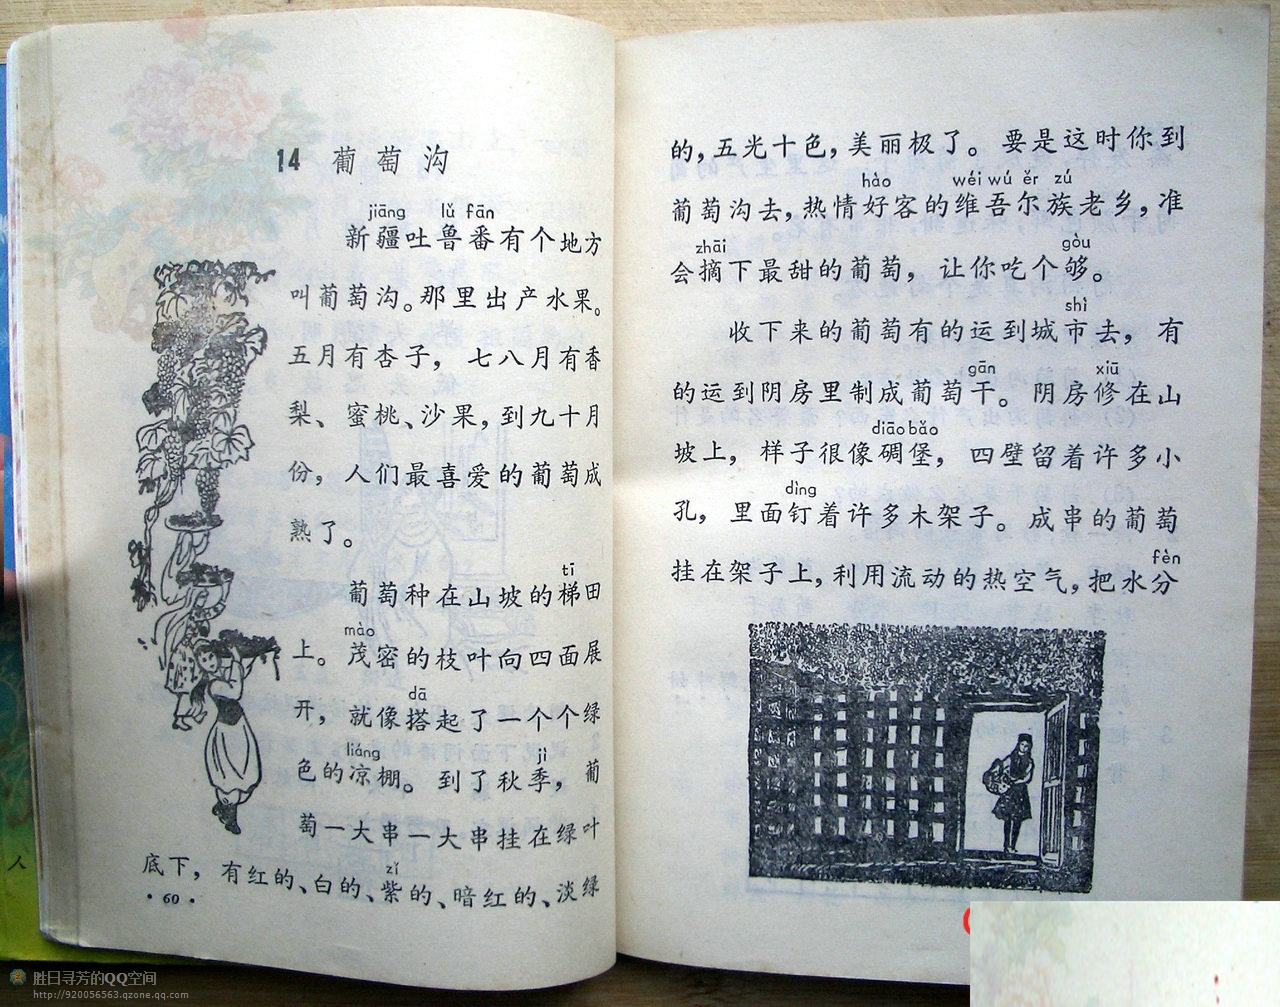 14 葡萄沟
jiāng lǔ fān
新疆吐鲁番有个地方
叫葡萄沟。那里出产水果。
五月有杏子，七八月有香
梨、蜜桃、沙果，到九十月
份，人们最喜爱的葡萄成
熟了。
tī
葡萄种在山坡的梯田
mào
上。茂密的枝叶向四面展
dā
开，就像搭起了一个个绿
liáng jì
色的凉棚。到了秋季，葡
萄一大串一大串挂在绿叶
zǐ
底下，有红的、白的、紫的、暗红的、淡绿
·60·
的，五光十色，美丽极了。要是这时你到
hào wéi wú ěr zú
葡萄沟去，热情好客的维吾尔族老乡，准
zhāi gòu
会摘下最甜的葡萄，让你吃个够。
shì
收下来的葡萄有的运到城市去，有
gān xiū
的运到阴房里制成葡萄干。阴房修在山
diāo bǎo
坡上，样子很像碉堡，四壁留着许多小
dìng
孔，里面钉着许多木架子。成串的葡萄
fèn
挂在架子上，利用流动的热空气，把水分
人
胜日寻芳的QQ空间
http://920056563.qzone.qq.com